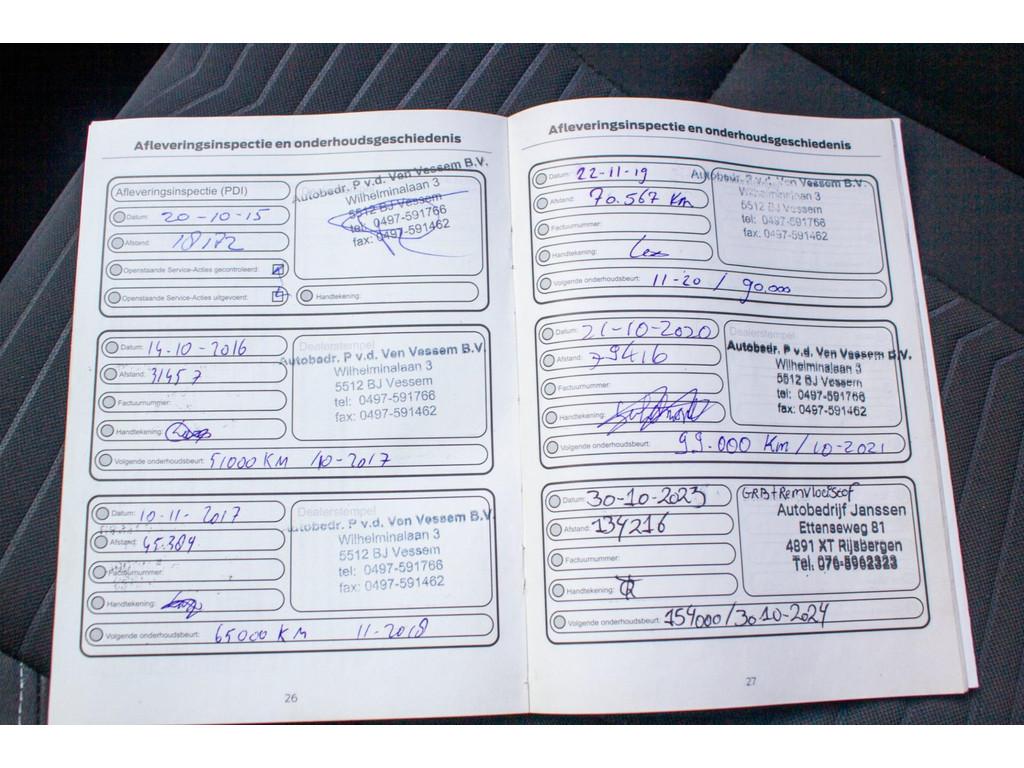 Afleveringsinspectie en onderhoudsgeschiedenis
Afleveringsinspectie (PDI)
Datum: 20-10-15
Afstand: 18172
Openstaande Service-Acties gecontroleerd:
Openstaande Service-Acties uitgevoerd:
Autobedr. P v.d. Ven Vessem B.V.
Wilhelminalaan 3
5512 BJ Vessem
tel: 0497-591766
fax: 0497-591462
Handtekening:
Datum: 14-10-2016
Afstand: 31457
Factuurnummer:
Handtekening:
Volgende onderhoudsbeurt: 51000 KM 10-2017
Dealerstempel
Autobedr. P v.d. Ven Vessem B.V.
Wilhelminalaan 3
5512 BJ Vessem
tel: 0497-591766
fax: 0497-591462
Datum: 10-11-2017
Afstand: 45.389
Factuurnummer:
Handtekening:
Volgende onderhoudsbeurt: 65000 KM 11-2018
Dealerstempel
Autobedr. P v.d. Ven Vessem B.V.
Wilhelminalaan 3
5512 BJ Vessem
tel: 0497-591766
fax: 0497-591462
26
Afleveringsinspectie en onderhoudsgeschiedenis
Datum: 22-11-19
Afstand: 70.567 Km
Factuurnummer:
Handtekening:
Volgende onderhoudsbeurt: 11-20 / 90.000
Autobedr. P v.d. Ven Vessem B.V.
Wilhelminalaan 3
5512 BJ Vessem
tel: 0497-591766
fax: 0497-591462
Datum: 21-10-2020
Afstand: 79416
Factuurnummer:
Handtekening:
Volgende onderhoudsbeurt: 99.000 Km / 10-2021
Dealerstempel
Autobedr. P v.d. Ven Vessem B.V.
Wilhelminalaan 3
5512 BJ Vessem
tel: 0497-591766
fax: 0497-591462
Datum: 30-10-2023
Afstand: 134216
Factuurnummer:
Handtekening:
Volgende onderhoudsbeurt: 154000/30-10-2024
GRB+Remvloeistof
Autobedrijf Janssen
Ettenseweg 81
4891 XT Rijsbergen
Tel. 076-5962323
27